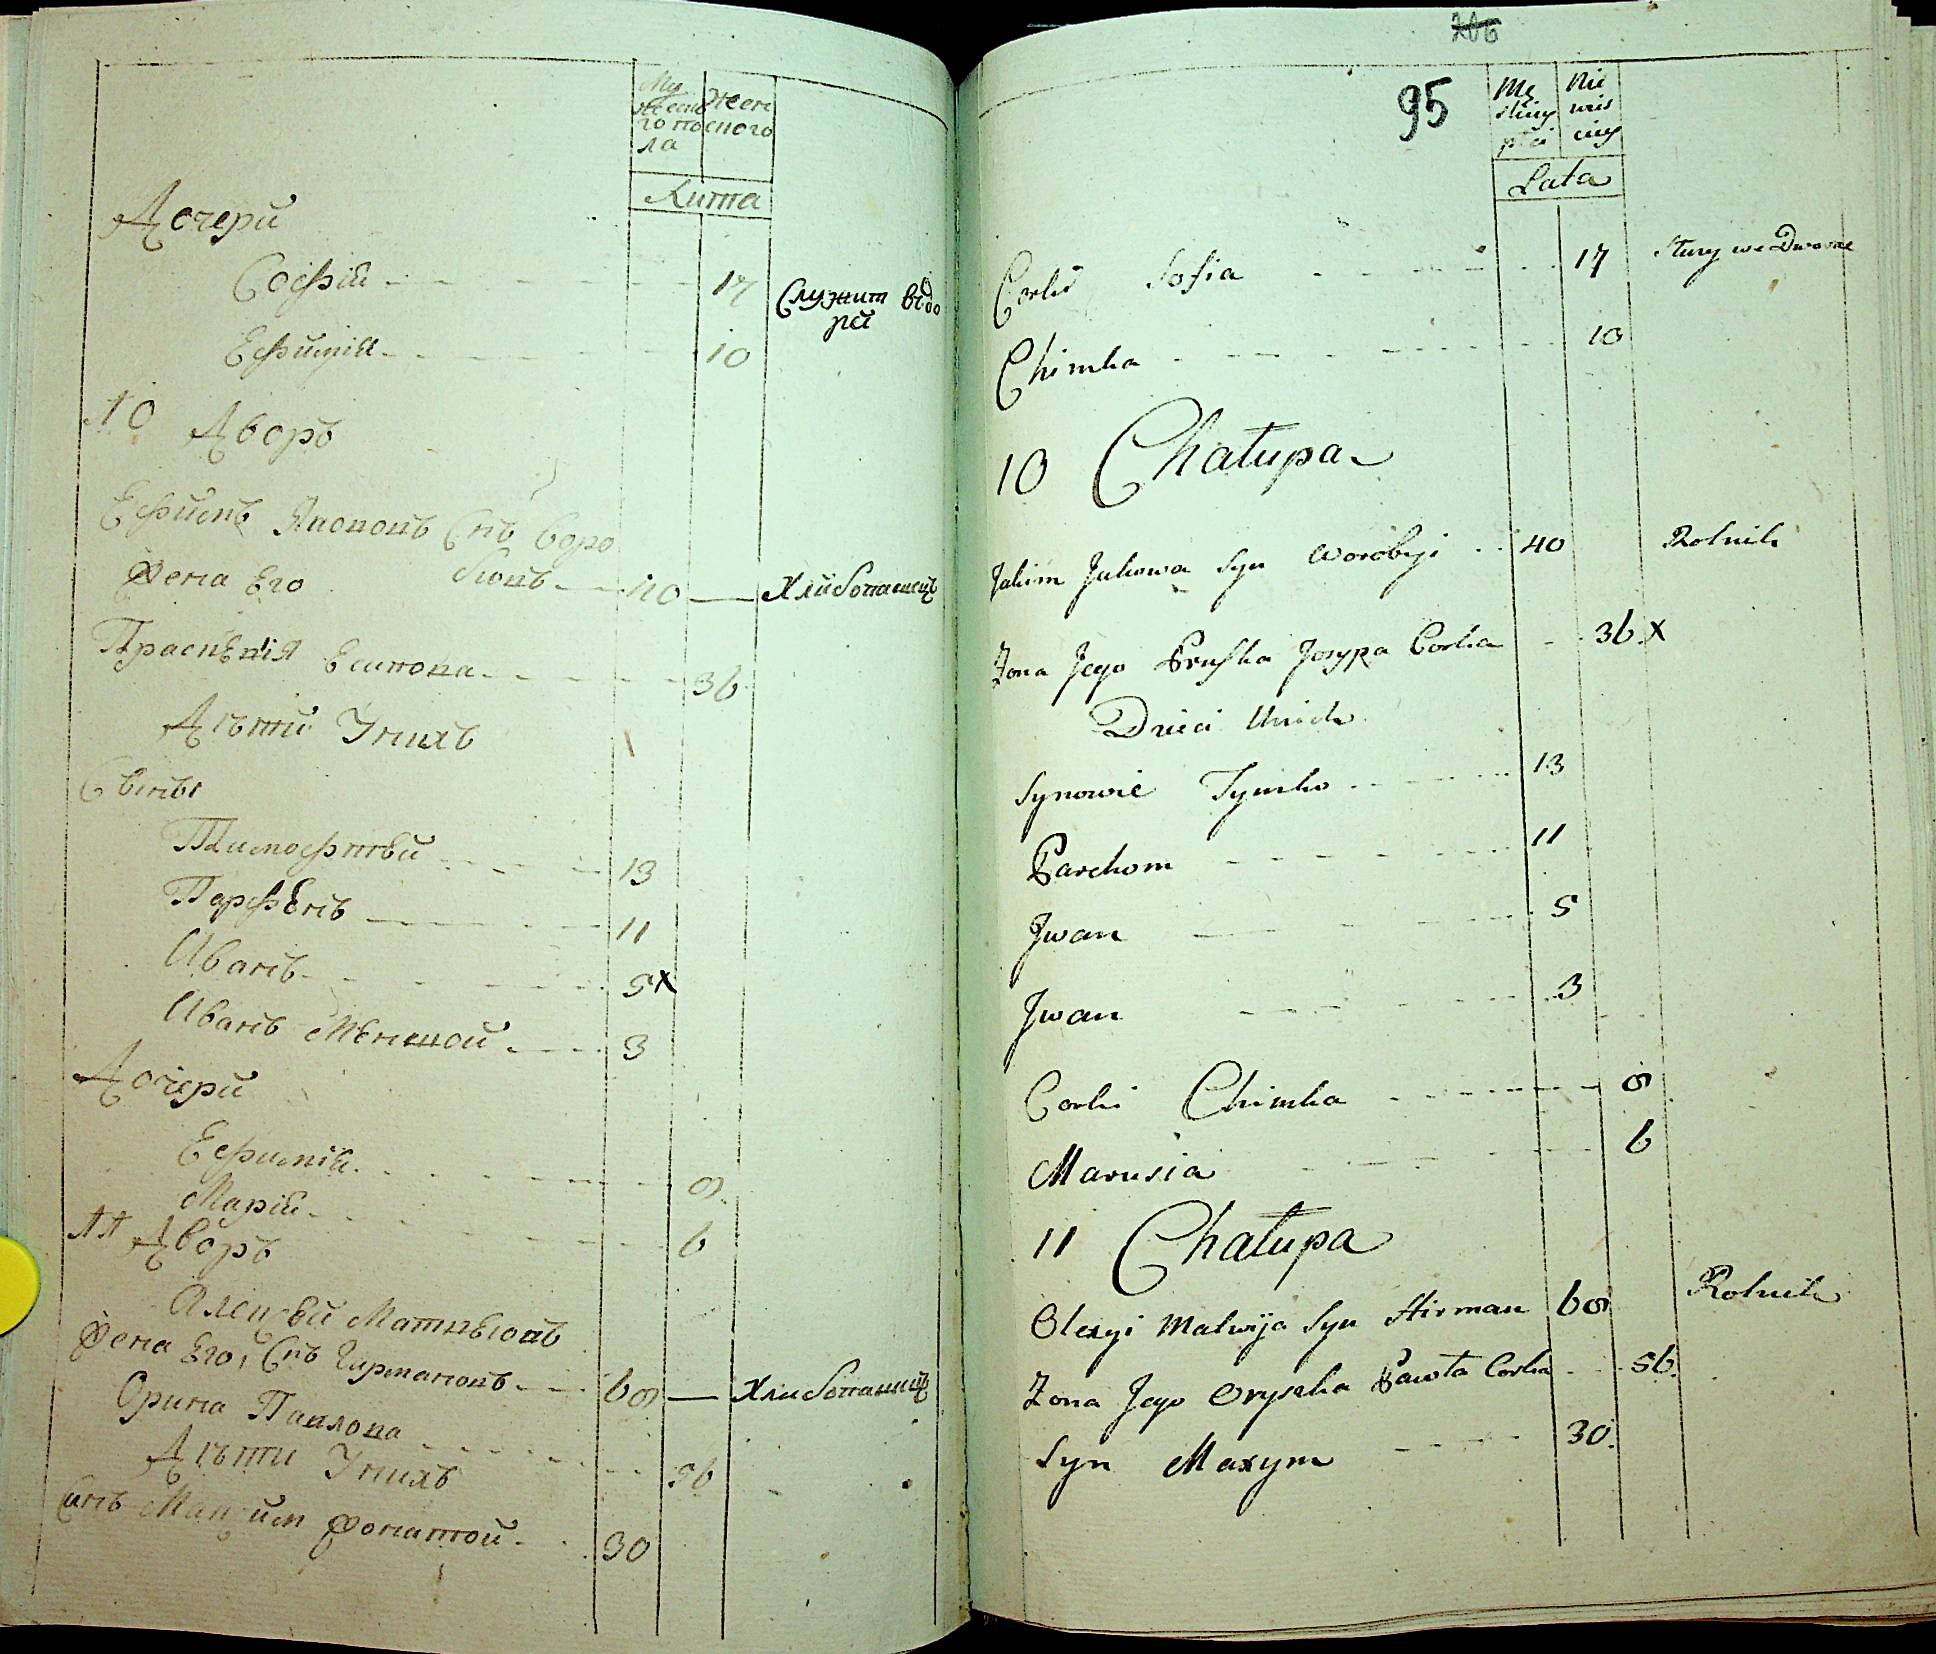 Му
жеска
го по
ла
Женс
кого
Лита
Дочери
Софія 17 Служит во дво
ри
Ефимія 10
10 Дворъ
Ефимъ Якововъ Снъ Воро
бювъ 40 Хлибопашецъ
Жена Его
Праскевія Есипова 36
Дѣти Унихъ
Сыны
Тимофтей 13
Парфенъ 11
Иванъ 5 X
Иванъ Меншой 3
Дочери
Ефимія 8
Марія 6
11 Дворъ
Алексѣй Матвѣювъ
Снъ Гирмановъ 68 Хлибопашецъ
Жена Его,
Орина Павлова 56
Дѣти Унихъ
Синъ Максим Жонатой 30
206
95
Mę
skiey
płci
Nie
wie
ciey
Lata
Corki Sofia 17 Służy we Dworze
Chimka 10
10 Chałupa
Jakim Jakowa Syn Worobyi 40 Rolnik
Żona Jego Pruska Josypa Corka 36 X
Dzieci Unich
Synowie Tymko 13
Parchom 11
Jwan 5
Jwan 3
Corki Chimka 8
Marusia 6
11 Chałupa
Olexyi Matwija Syn Hirman 68 Rolnik
Żona Jego Oryszka Pawła Corka 56
Syn Maxym 30